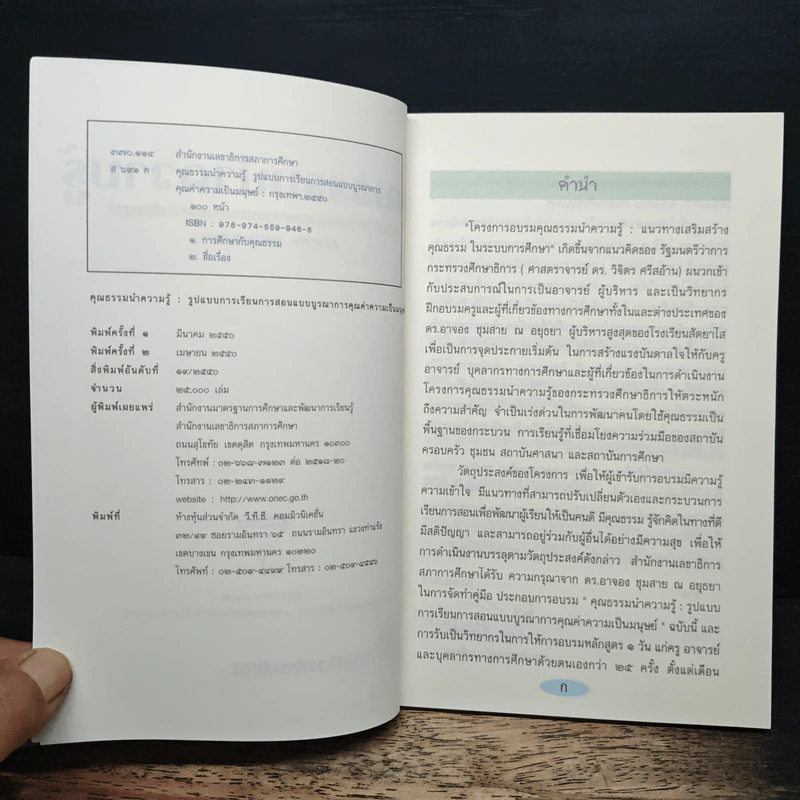 ๓๗๐.๑๑๔ สำนักงานเลขาธิการสภาการศึกษา
ส ๖๙๑ ค คุณธรรมนำความรู้ รูปแบบการเรียนการสอนแบบบูรณาการ
คุณค่าความเป็นมนุษย์ : กรุงเทพฯ.๒๕๕๐
๑๐๐ หน้า
ISBN : 978-974-559-946-8
๑. การศึกษากับคุณธรรม
๒. ชื่อเรื่อง
คุณธรรมนำความรู้ : รูปแบบการเรียนการสอนแบบบูรณาการคุณค่าความเป็นมนุษย์
พิมพ์ครั้งที่ ๑ มีนาคม ๒๕๕๐
พิมพ์ครั้งที่ ๒ เมษายน ๒๕๕๐
สิ่งพิมพ์อันดับที่ ๑๙/๒๕๕๐
จำนวน ๒๕,๐๐๐ เล่ม
ผู้พิมพ์เผยแพร่ สำนักงานมาตรฐานการศึกษาและพัฒนาการเรียนรู้
สำนักงานเลขาธิการสภาการศึกษา
ถนนสุโขทัย เขตดุสิต กรุงเทพมหานคร ๑๐๓๐๐
โทรศัพท์ : ๐๒-๖๖๘-๗๑๒๓ ต่อ ๒๕๑๘-๒๐
โทรสาร : ๐๒-๒๔๓-๑๑๒๙
website : http://www.onec.go.th
พิมพ์ที่ ห้างหุ้นส่วนจำกัด วี.ที.ซี. คอมมิวนิเคชั่น
๓๒/๙๙ ซอยรามอินทรา ๖๕ ถนนรามอินทรา แขวงท่าแร้ง
เขตบางเขน กรุงเทพมหานคร ๑๐๒๒๐
โทรศัพท์ : ๐๒-๕๐๙-๔๔๙๙ โทรสาร : ๐๒-๕๐๙-๔๕๔๖
คำนำ
"โครงการอบรมคุณธรรมนำความรู้ : แนวทางเสริมสร้าง
คุณธรรม ในระบบการศึกษา" เกิดขึ้นจากแนวคิดของ รัฐมนตรีว่าการ
กระทรวงศึกษาธิการ ( ศาสตราจารย์ ดร. วิจิตร ศรีสอ้าน) ผนวกเข้า
กับประสบการณ์ในการเป็นอาจารย์ ผู้บริหาร และเป็นวิทยากร
ฝึกอบรมครูและผู้ที่เกี่ยวข้องทางการศึกษาทั้งในและต่างประเทศของ
ดร.อาจอง ชุมสาย ณ อยุธยา ผู้บริหารสูงสุดของโรงเรียนสัตยาไส
เพื่อเป็นการจุดประกายเริ่มต้น ในการสร้างแรงบันดาลใจให้กับครู
อาจารย์ บุคลากรทางการศึกษาและผู้ที่เกี่ยวข้องในการดำเนินงาน
โครงการคุณธรรมนำความรู้ของกระทรวงศึกษาธิการให้ตระหนัก
ถึงความสำคัญ จำเป็นเร่งด่วนในการพัฒนาคนโดยใช้คุณธรรมเป็น
พื้นฐานของกระบวน การเรียนรู้ที่เชื่อมโยงความร่วมมือของสถาบัน
ครอบครัว ชุมชน สถาบันศาสนา และสถาบันการศึกษา
วัตถุประสงค์ของโครงการ เพื่อให้ผู้เข้ารับการอบรมมีความรู้
ความเข้าใจ มีแนวทางที่สามารถปรับเปลี่ยนตัวเองและกระบวนการ
เรียนการสอนเพื่อพัฒนาผู้เรียนให้เป็นคนดี มีคุณธรรม รู้จักคิดในทางที่ดี
มีสติปัญญา และสามารถอยู่ร่วมกับผู้อื่นได้อย่างมีความสุข เพื่อให้
การดำเนินงานบรรลุตามวัตถุประสงค์ดังกล่าว สำนักงานเลขาธิการ
สภาการศึกษาได้รับ ความกรุณาจาก ดร.อาจอง ชุมสาย ณ อยุธยา
ในการจัดทำคู่มือ ประกอบการอบรม " คุณธรรมนำความรู้ : รูปแบบ
การเรียนการสอนแบบบูรณาการคุณค่าความเป็นมนุษย์ " ฉบับนี้ และ
การรับเป็นวิทยากรในการให้การอบรมหลักสูตร ๑ วัน แก่ครู อาจารย์
และบุคลากรทางการศึกษาด้วยตนเองกว่า ๒๕ ครั้ง ตั้งแต่เดือน
ก